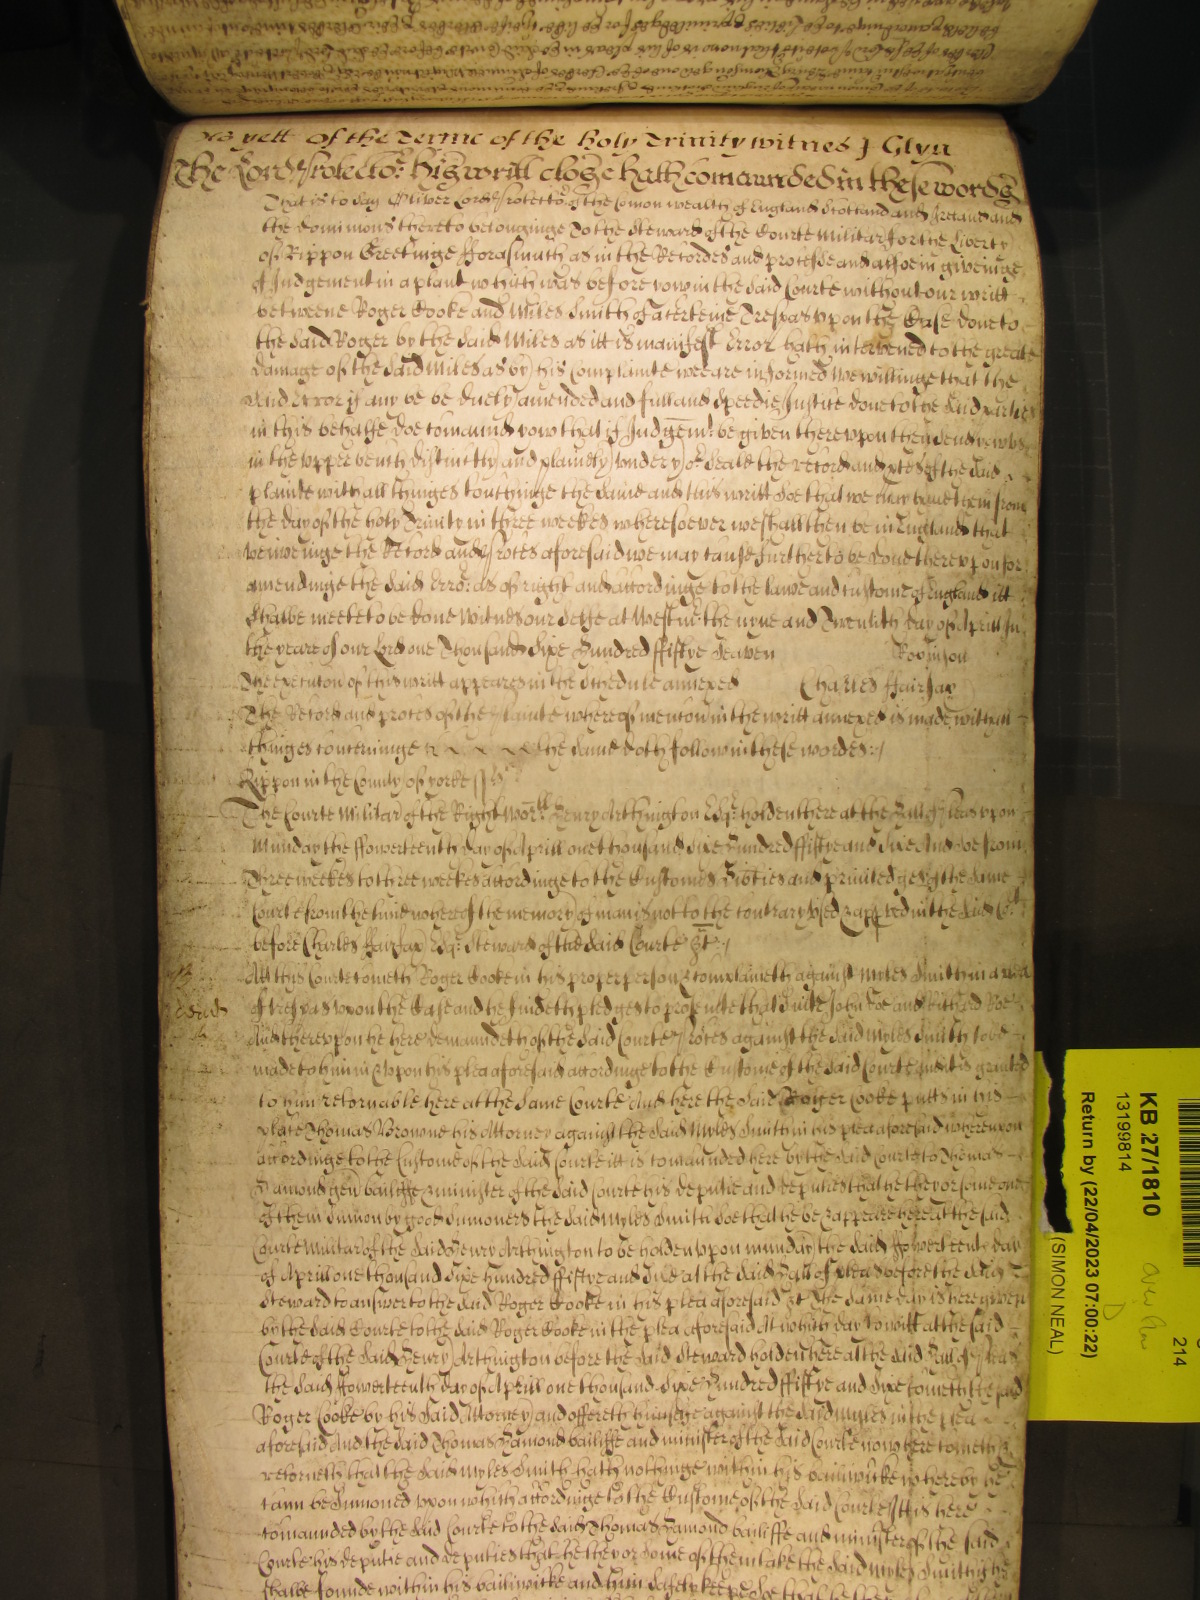 as yett Of the Terme of the holy Trinity witnes J Glyn
The Lord Protector his writt close hath comaunded in these words
That is to say Oliver Lord Protector of the Comon wealth of England Scotland and Ireland and
the dominions thereto belonginge To the Steward of the Courte Militar for the Liberty
of Rippon Greetinge fforasmuch as in the Recordes and processe and alsoe in giveinge
of Judgement in a plaint which was before yow in the said Courte without our writt
betweene Roger Cooke and Miles Smith of a certeine Trespas upon the Case done to
the said Roger by the said Miles as itt is manifest Error hath intervened to the greate
damage of the said Miles as by his Complainte wee are informed We willinge that the
said error if any be be duely amended and full and speedie Justice done to the said parties
in this behalfe doe comaund yow that if Judgem: be given thereupon then send to us
in the upper bench distinctly and plainely under yor seale the record and of the said
plainte with all thinges touchinge the same and this writt soe that we may have them from
the day of the holy Trinity in three weekes wheresoever we shall then be in England that
veiweinge the Record and Proces aforesaid we may cause further to be done thereupon for
amendinge the said Error as of right and accordinge to the lawe and custome of England itt
shalbe meete to be done Witnes our selfe at Westmr the nyne and Twentith day of Aprill In
the yeare of our Lord one Thousand Sixe Hundred ffiftye Seaven Robinson
The execution of this writt appeares in the schedule annexed Charles ffairfax
The Record and proces of the Plainte whereof mencon in the writt annexed is made with all
thinges concerninge the same doth follow in these wordes:/
Rippon in the County of yorke Ss
The Courte Militar of the Right Worll Henry Arthington Esqr holden there at the Hall of pleas upon
Munday the ffowerteenth day of Aprill one thousand Sixe Hundred ffiftye and Sixe And soe from
Three weekes to three weekes accordinge to the Customes Liberties and priviledges of the same
Courte from the time whereof the memory of man is not to the contrary used & in the said
before Charles ffairfax Esqr Steward of the said Courte &c:/
Att this Courte cometh Roger Cooke in his proper person & complaineth against Myles Smith in a plea
of trespas upon the Case and he findeth pledges to prosecute that suite John Doe and Richard Roe
And thereupon he here demaundeth of the said Courte Proces against the said Myles Smith to be
made to him in & upon his plea aforesaid accordinge to the Custome of the said Courte And it is granted
to him retornable here at the same Courte And here the said Roger Cooke putts in his
place Thomas Browne his Attorney against the said Myles Smith in his plea aforesaid whereupon
accordinge to the Custome of the said Courte itt is comaunded here by the said Courte to Thomas
Hamond gen bailiffe & minister of the said Courte his deputie and deputies that he they or some one
of them Sumon by good Sumoners the said Myles Smith soe that he be & appeare here att the said
Courte Militar of the said Henry Arthington to be holden upon munday the said ffowerteenth day
of Aprill one thousand Sixe Hundred ffiftye and Sixe at the said Hall of pleas before the said
Steward to answer to the said Roger Cooke in his plea aforesaid &c The same day is here given
by the said Courte to the said Roger Cooke in the plea aforesaid At which day to witt at the said
Courte of the said Henry Arthington before the said Steward holden here at the said Hall of Pleas
the said ffowerteenth day of Aprill one thousand Sixe Hundred ffiftye and Sixe cometh the said
Roger Cooke by his said Attorney and offereth himselfe against the said Myles in the plea
aforesaid And the said Thomas Hamond bailiffe and minister of the said Courte now here cometh &
retorneth that the said Myles Smith hath nothinge within his bailiwicke whereby he
cann be Sumoned upon which accordinge to the Custome of the said Courte Itt is here
comaunded by the said Courte to the said Thomas Hamond bailiffe and minister of the said
Courte his deputie and deputies that he they or some of them take the said Myles Smith if he
shalbe founde within his bailiwicke and him safely keepe soe that he
KB 27/1810
13199814
Return by (22/04/2023 07:00:22)
(SIMON NEAL)
214